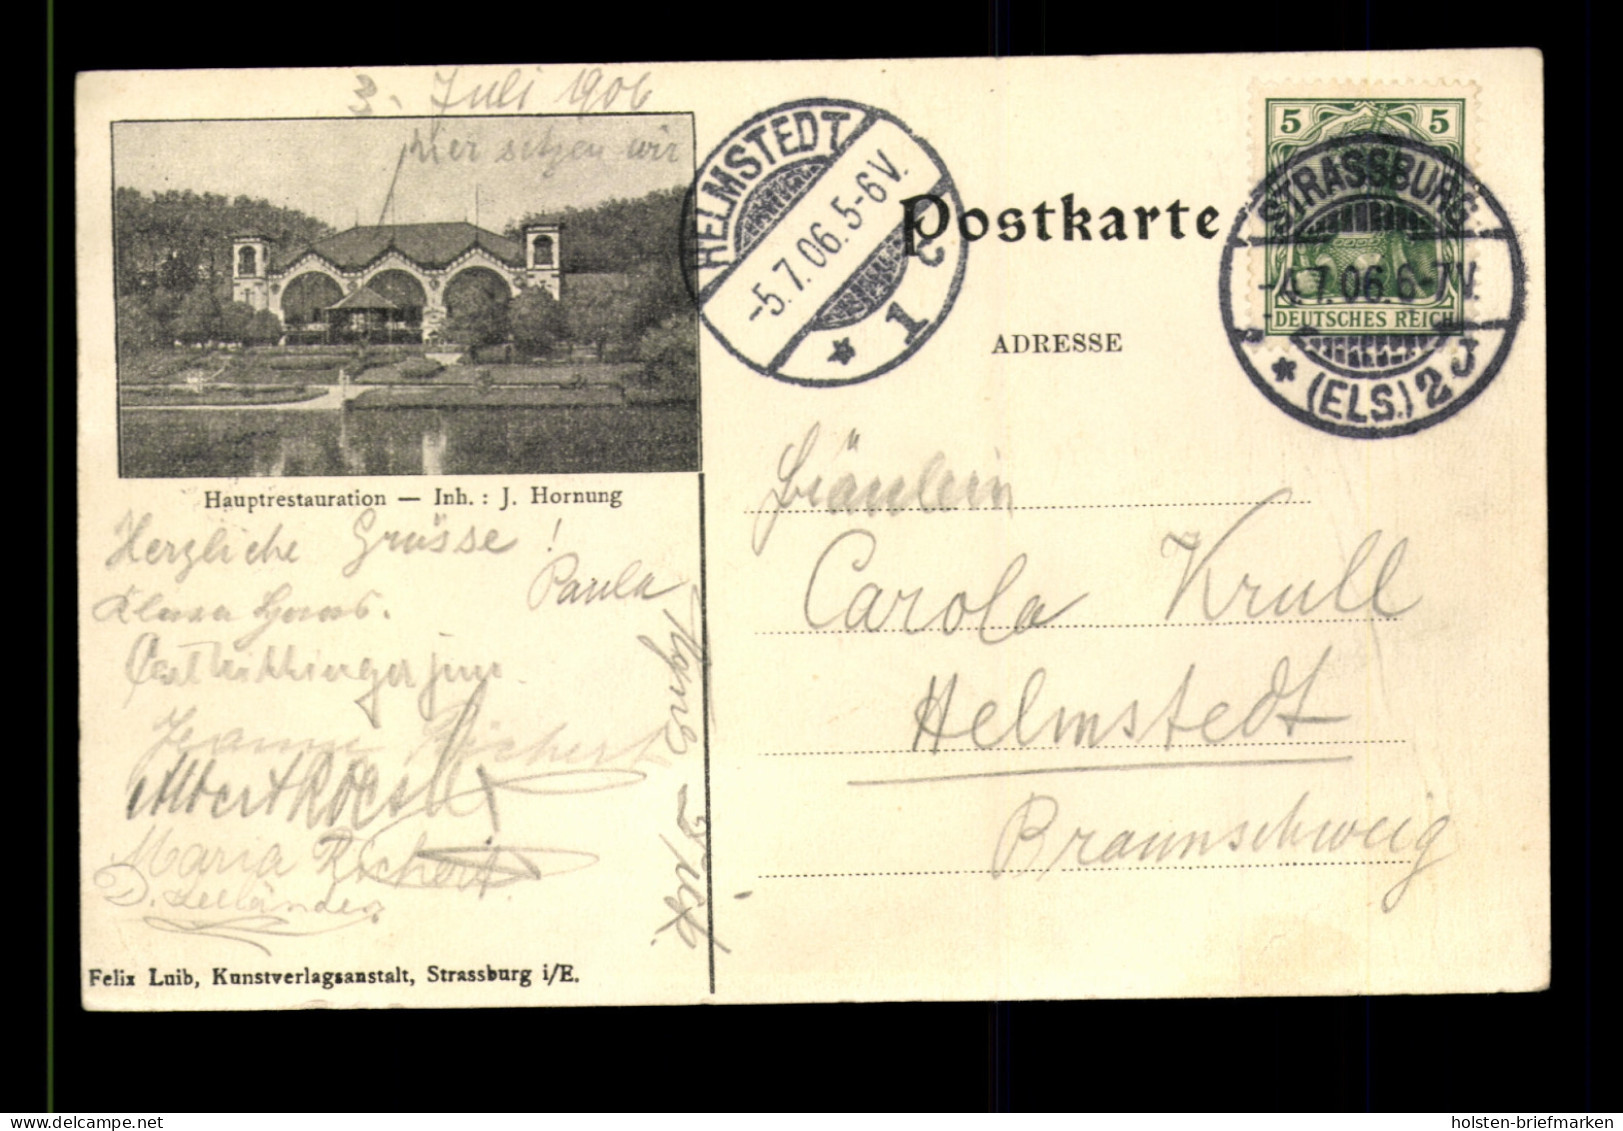 3. Juli 1906
hier sitzen wir
Hauptrestauration — Inh. : J. Hornung
Herzliche Grüsse !
Paula
Haas.
jun.
Richert
Albert
Maria Richert
D. Seeländer
Agnes
Felix Luib, Kunstverlagsanstalt, Strassburg i/E.
HELMSTEDT
-5.7.06.5-6V.
* 1 c
Postkarte
ADRESSE
5 5
DEUTSCHES REICH
STRASSBURG
-4.7.06.6-7N.
* (ELS.) 2 J
Fräulein
Carola Krull
Helmstedt
Braunschweig
holsten-briefmarken